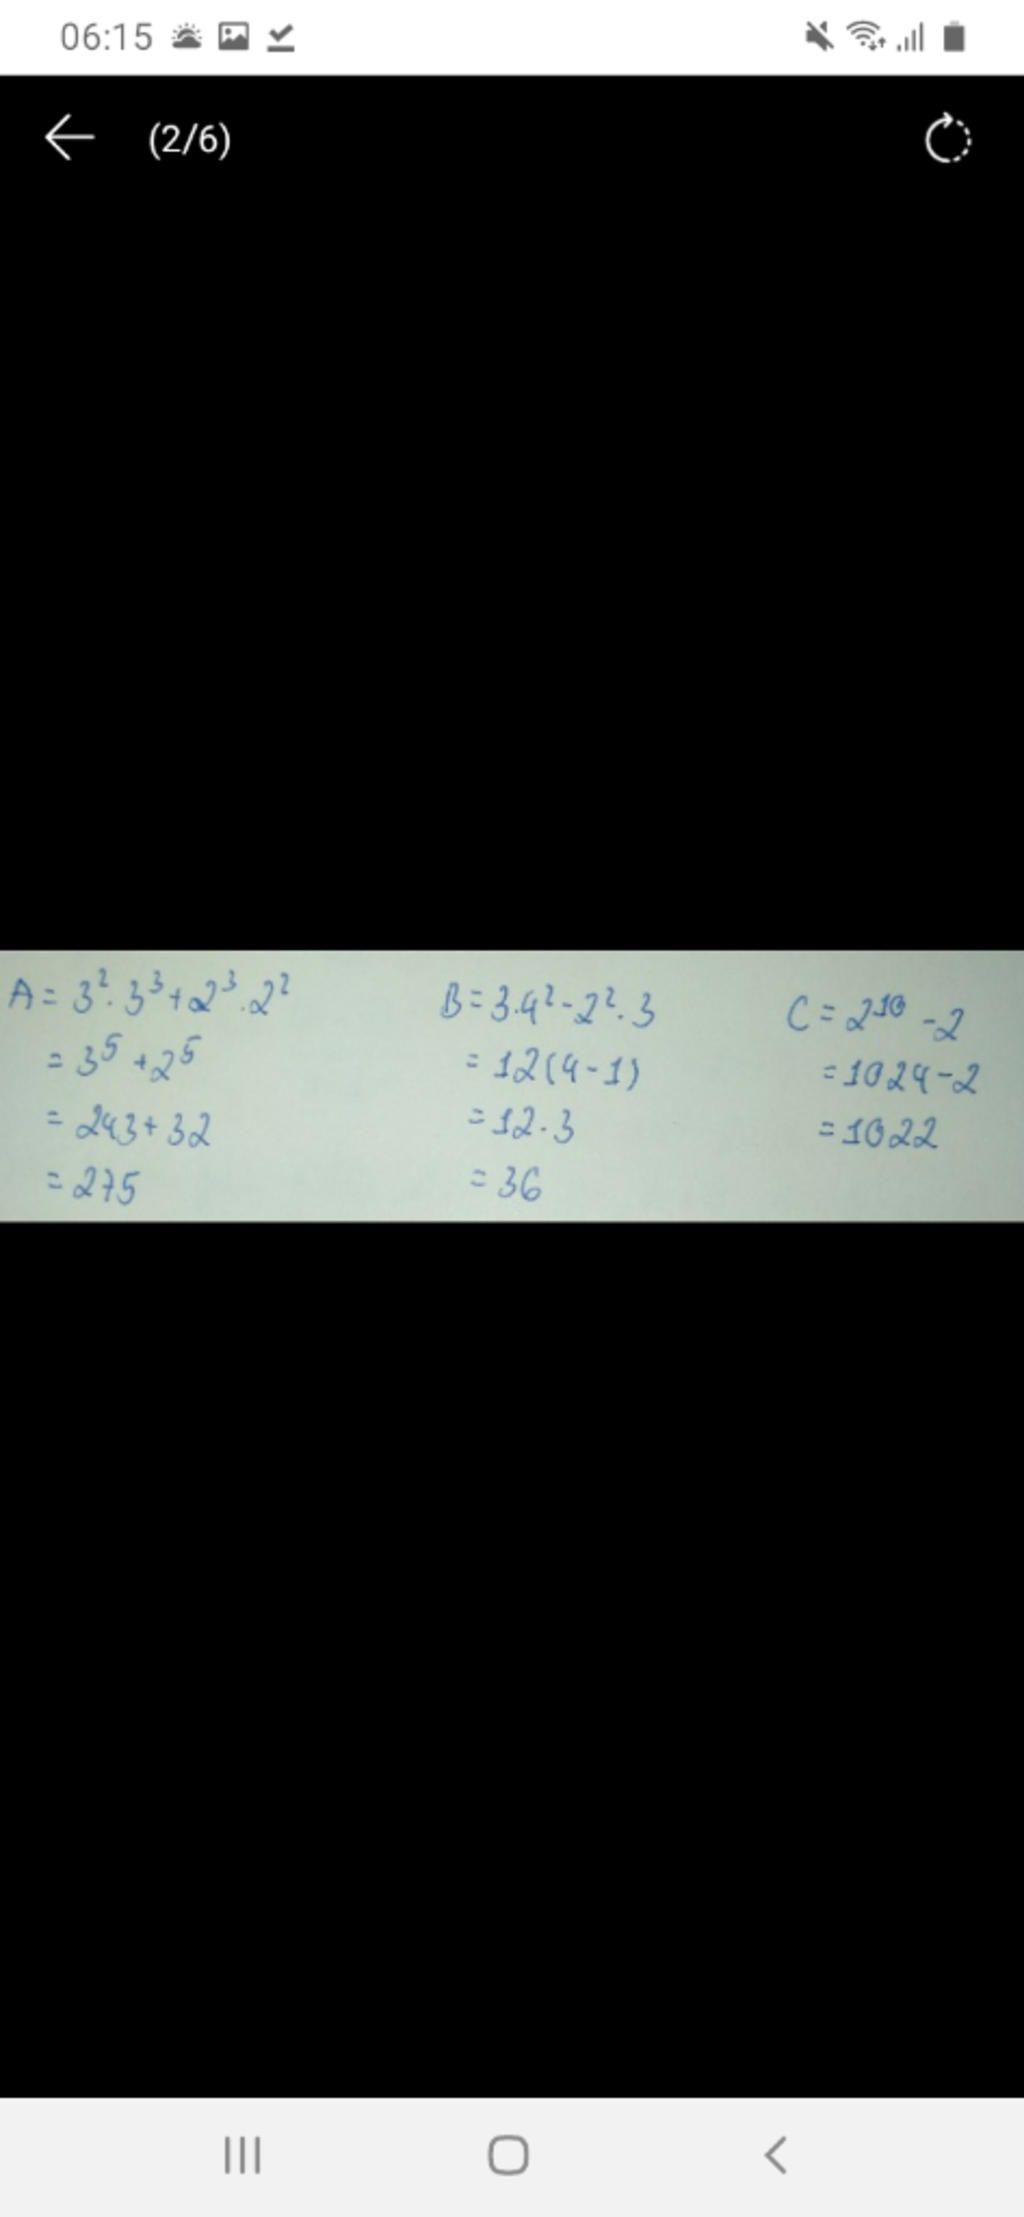 06:15
(2/6)
A = 3². 3³ + 2³. 2²
= 3⁵ + 2⁵
= 243 + 32
= 275
B = 3.4² - 2². 3
= 12(4-1)
= 12.3
= 36
C = 2¹⁰ - 2
= 1024 - 2
= 1022